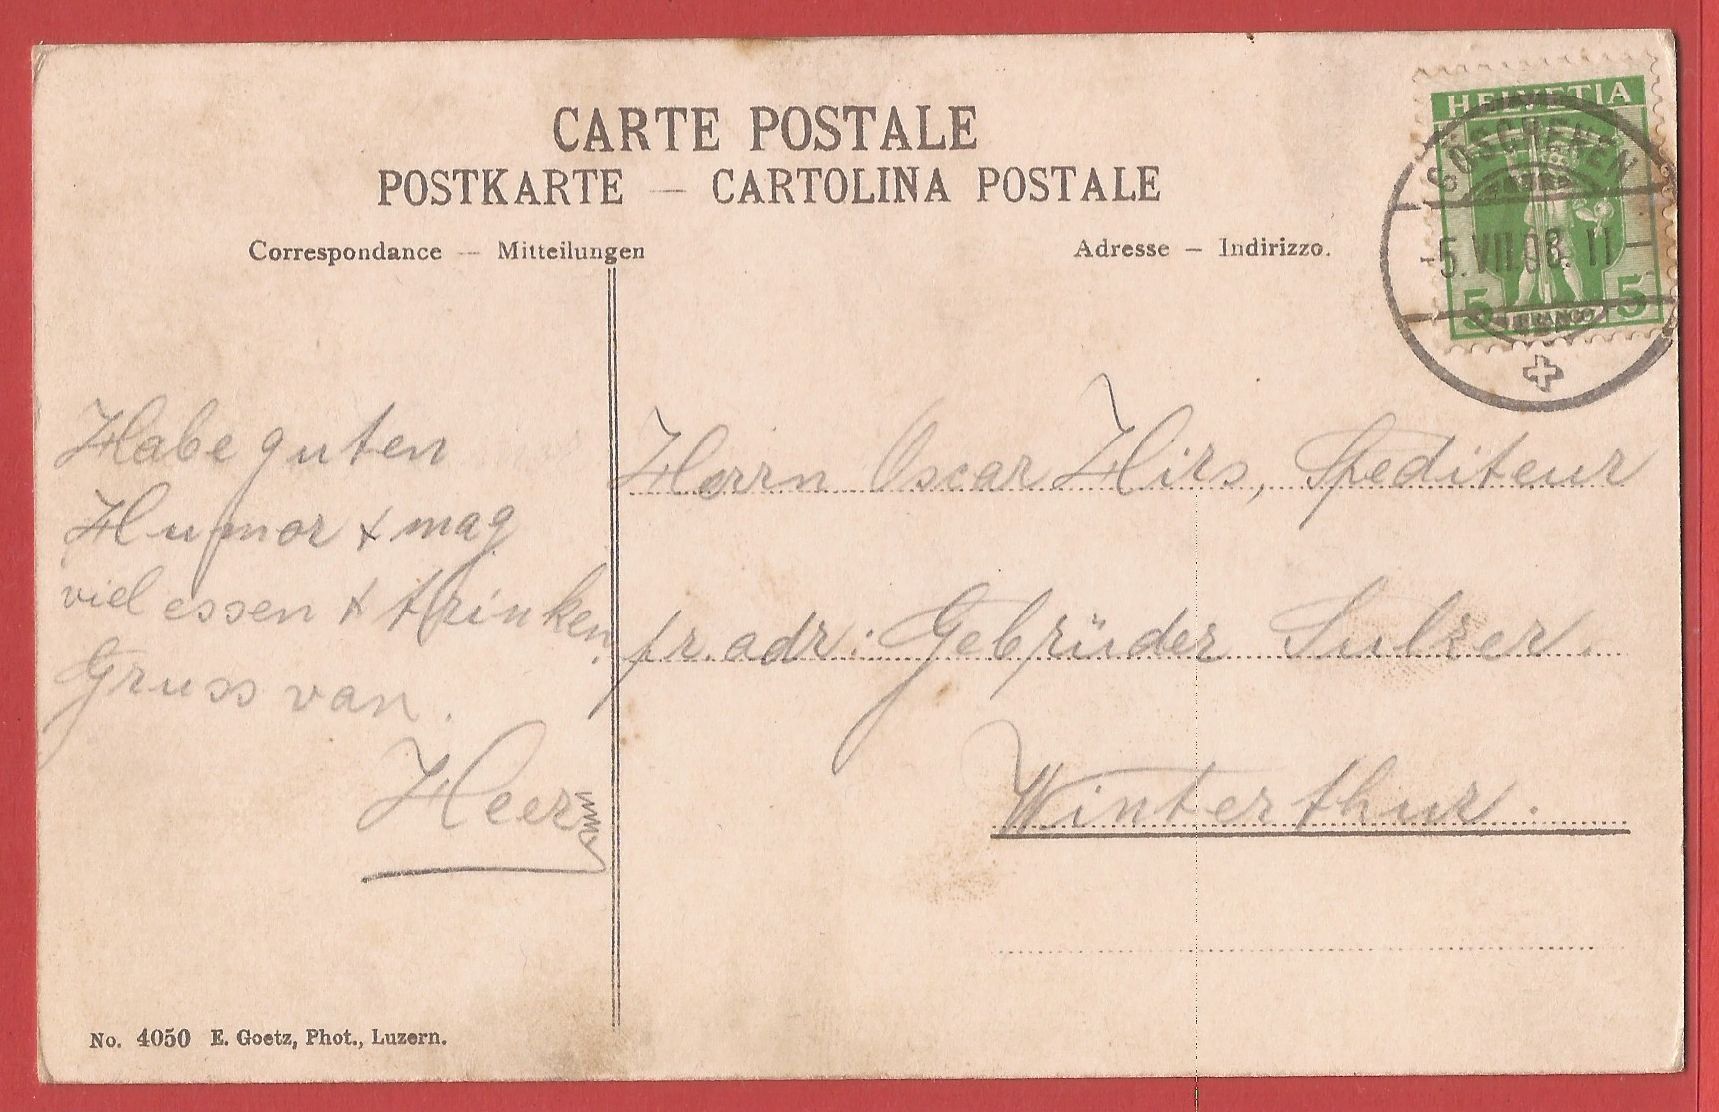 CARTE POSTALE
POSTKARTE — CARTOLINA POSTALE
Correspondance — Mitteilungen
Adresse — Indirizzo.
HELVETIA
GÖSCHENEN
-5.VII.08.11
5 FRANCO 5
Habe guten
Humor & mag
viel essen & trinken.
Gruss van.
Heer
Herrn Oscar Hirs, Spediteur
pr. adr: Gebrüder Sulzer.
Winterthur.
No. 4050 E. Goetz, Phot., Luzern.